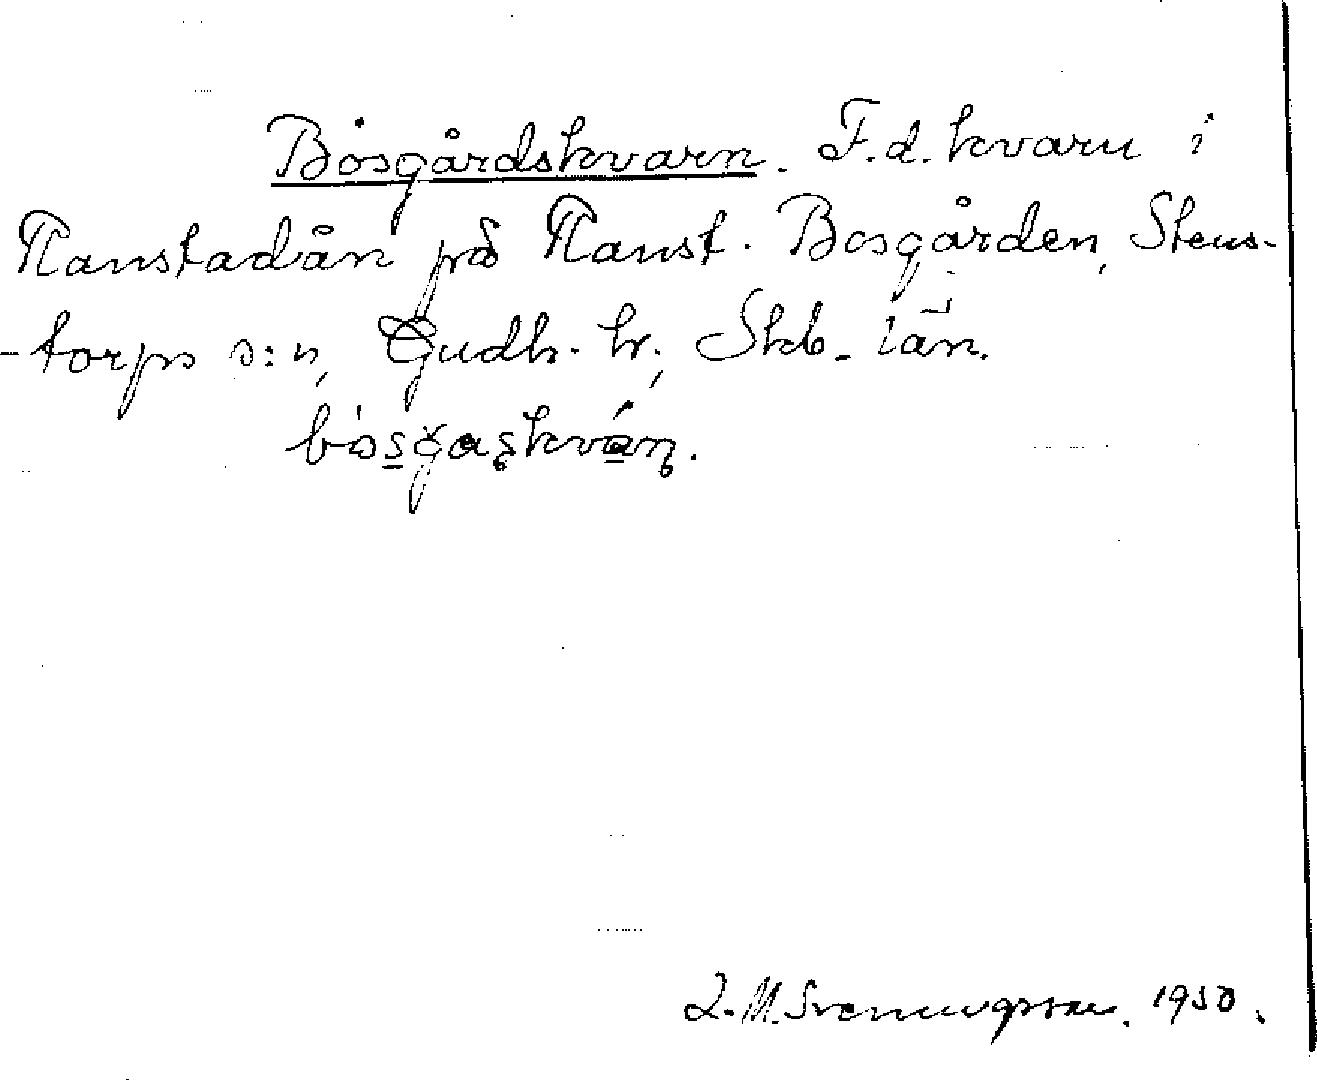 Bosgårdskvarn. F.d. kvarn i
Ranstadån på Ranst. Bosgården, Stens-
-torps s:n, Gudh. hr, Skb. län.
L. M. Svenungsson. 1950.